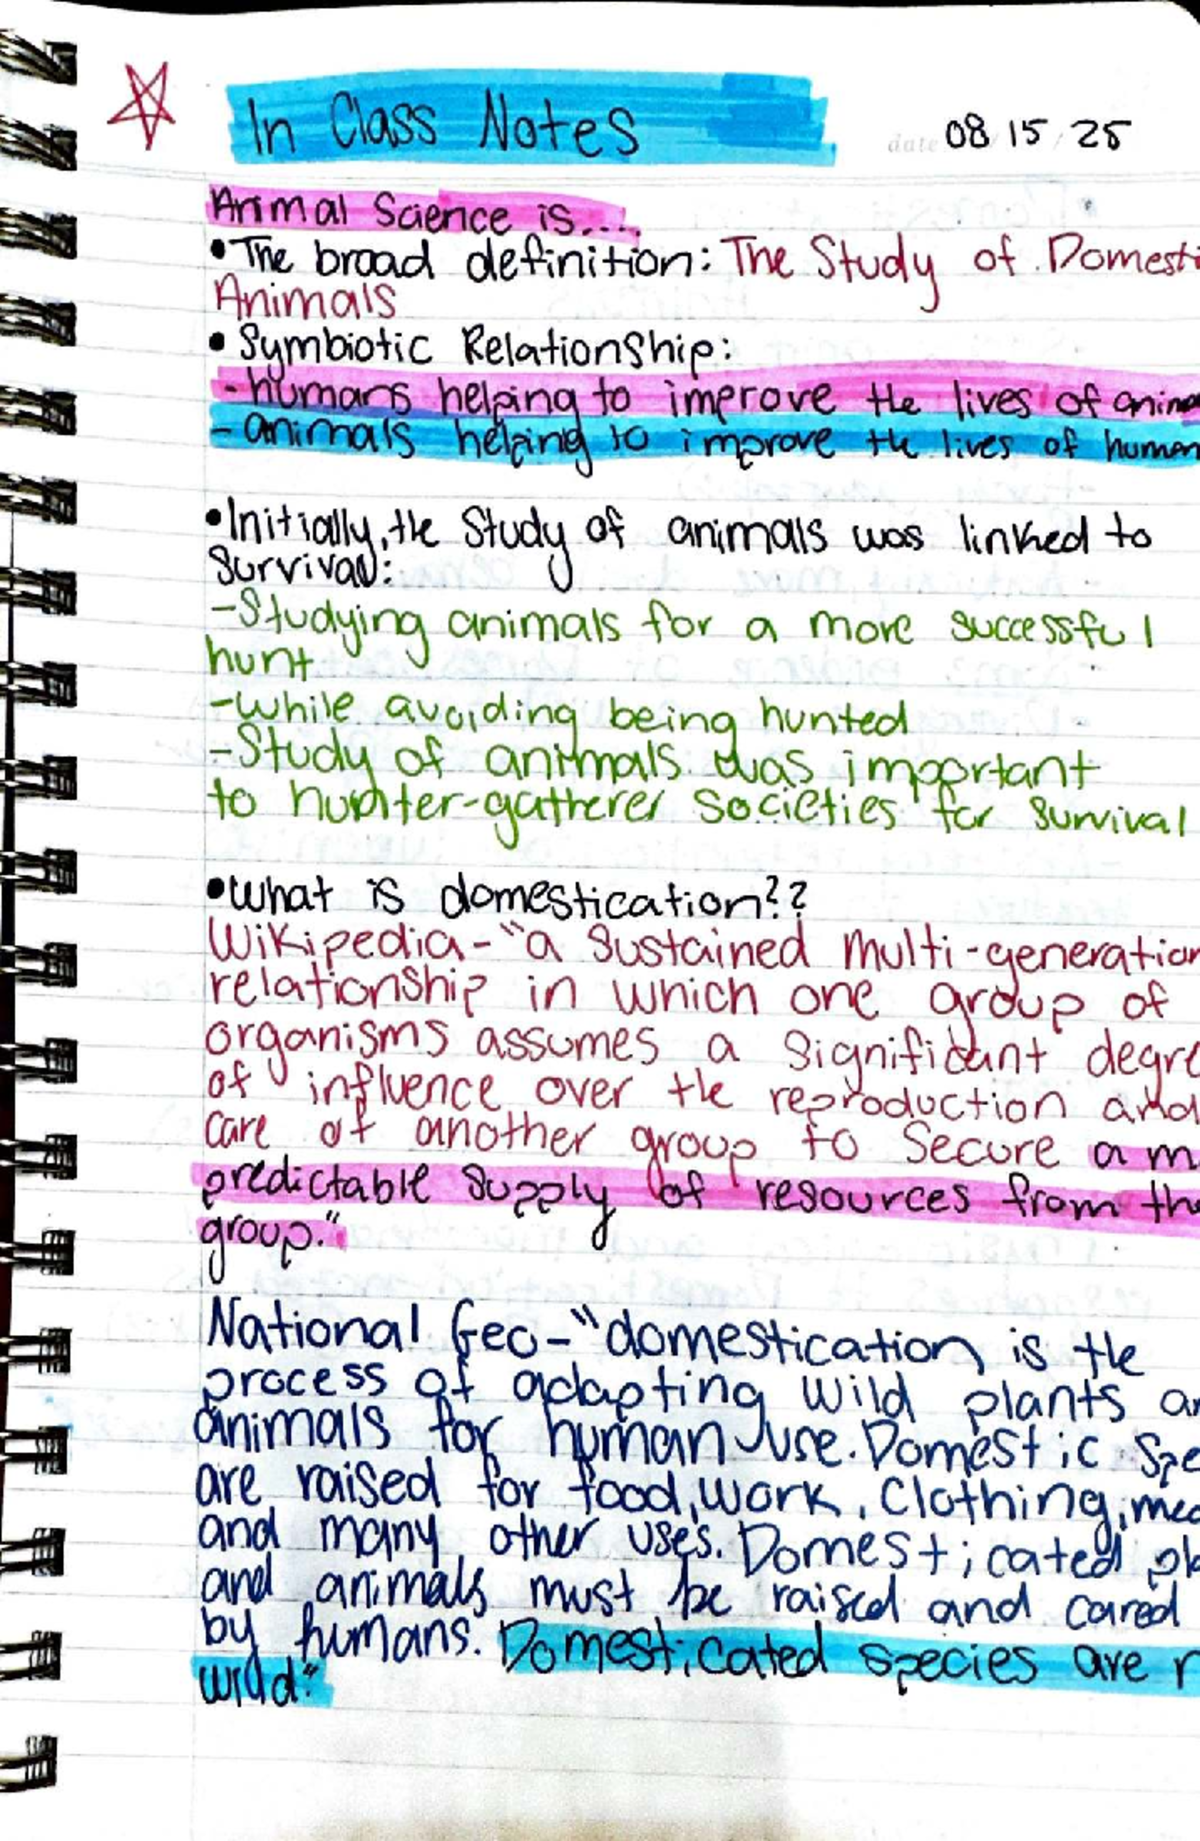 In Class Notes
date 08 / 15 / 25
Animal Science is....
• The broad definition: The Study of Domesti
Animals
• Symbiotic Relationship:
- humans helping to improve the lives of anima
- animals helping to improve the lives of human
• Initially, the Study of animals was linked to
Survival:
- Studying animals for a more successful
hunt
- while avoiding being hunted
- Study of animals was important
to hunter-gatherer societies for survival
• What is domestication??
Wikipedia - "a sustained multi-generation
relationship in which one group of
organisms assumes a significant degre
of influence over the reproduction and
care of another group to secure a m
predictable supply of resources from the
group."
National Geo - "domestication is the
process of adapting wild plants an
animals for human use. Domestic spe
are raised for food, work, clothing, med
and many other uses. Domesticated pla
and animals must be raised and cared
by humans. Domesticated species are n
wild."